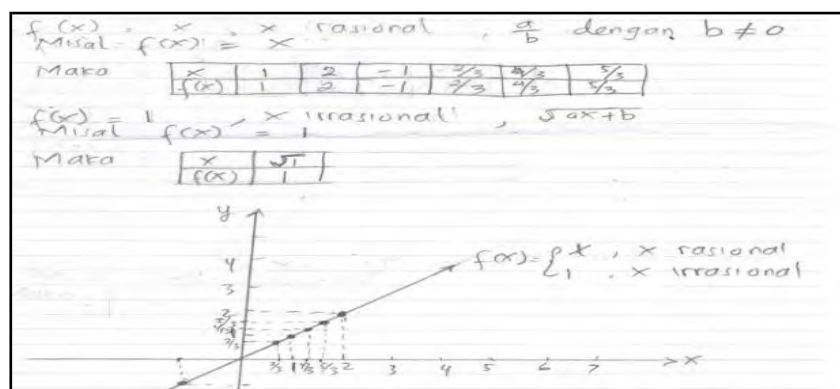 f(x) = x , x rasional , a/b dengan b ≠ 0
Misal f(x) = x
Maka x 1 2 -1 2/3 4/3 5/3
f(x) 1 2 -1 2/3 4/3 5/3
f(x) = 1 , x irrasional , √ax+b
Misal f(x) = 1
Maka x √1
f(x) 1
y
4
3
2
f(x) = { x , x rasional
1 , x irrasional
2/3 1 4/3 5/3 2 3 4 5 6 7 x